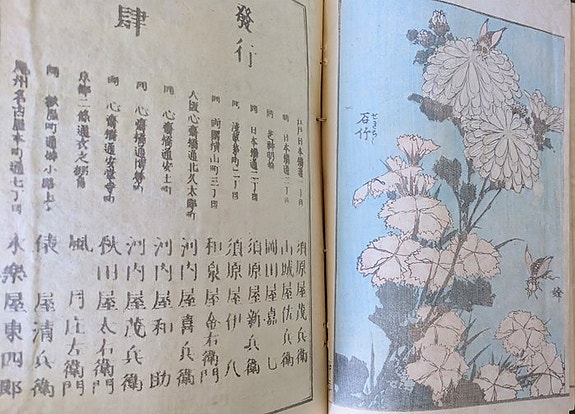 蜂
石竹
せきちく
發行
肆
江戸日本橋通一丁目 須原屋茂兵衛
同 日本橋通二丁目 山城屋佐兵衛
同 芝神明前 岡田屋嘉七
同 日本橋通二丁目 須原屋新兵衛
同 淺草茅町二丁目 須原屋伊八
同 両國横山町三丁目 和泉屋金右衛門
大阪心齋橋通北久太郎町 河内屋喜兵衛
同 心齋橋通安土町 河内屋和助
同 心齋橋通博勞町 河内屋茂兵衛
同 心齋橋通安堂寺町 秋田屋太右衛門
京都二條通衣之棚角 風月庄左衛門
同 町通姉小路上ル 俵屋清兵衛
尾州名古屋本町通七丁目 永樂屋東四郎